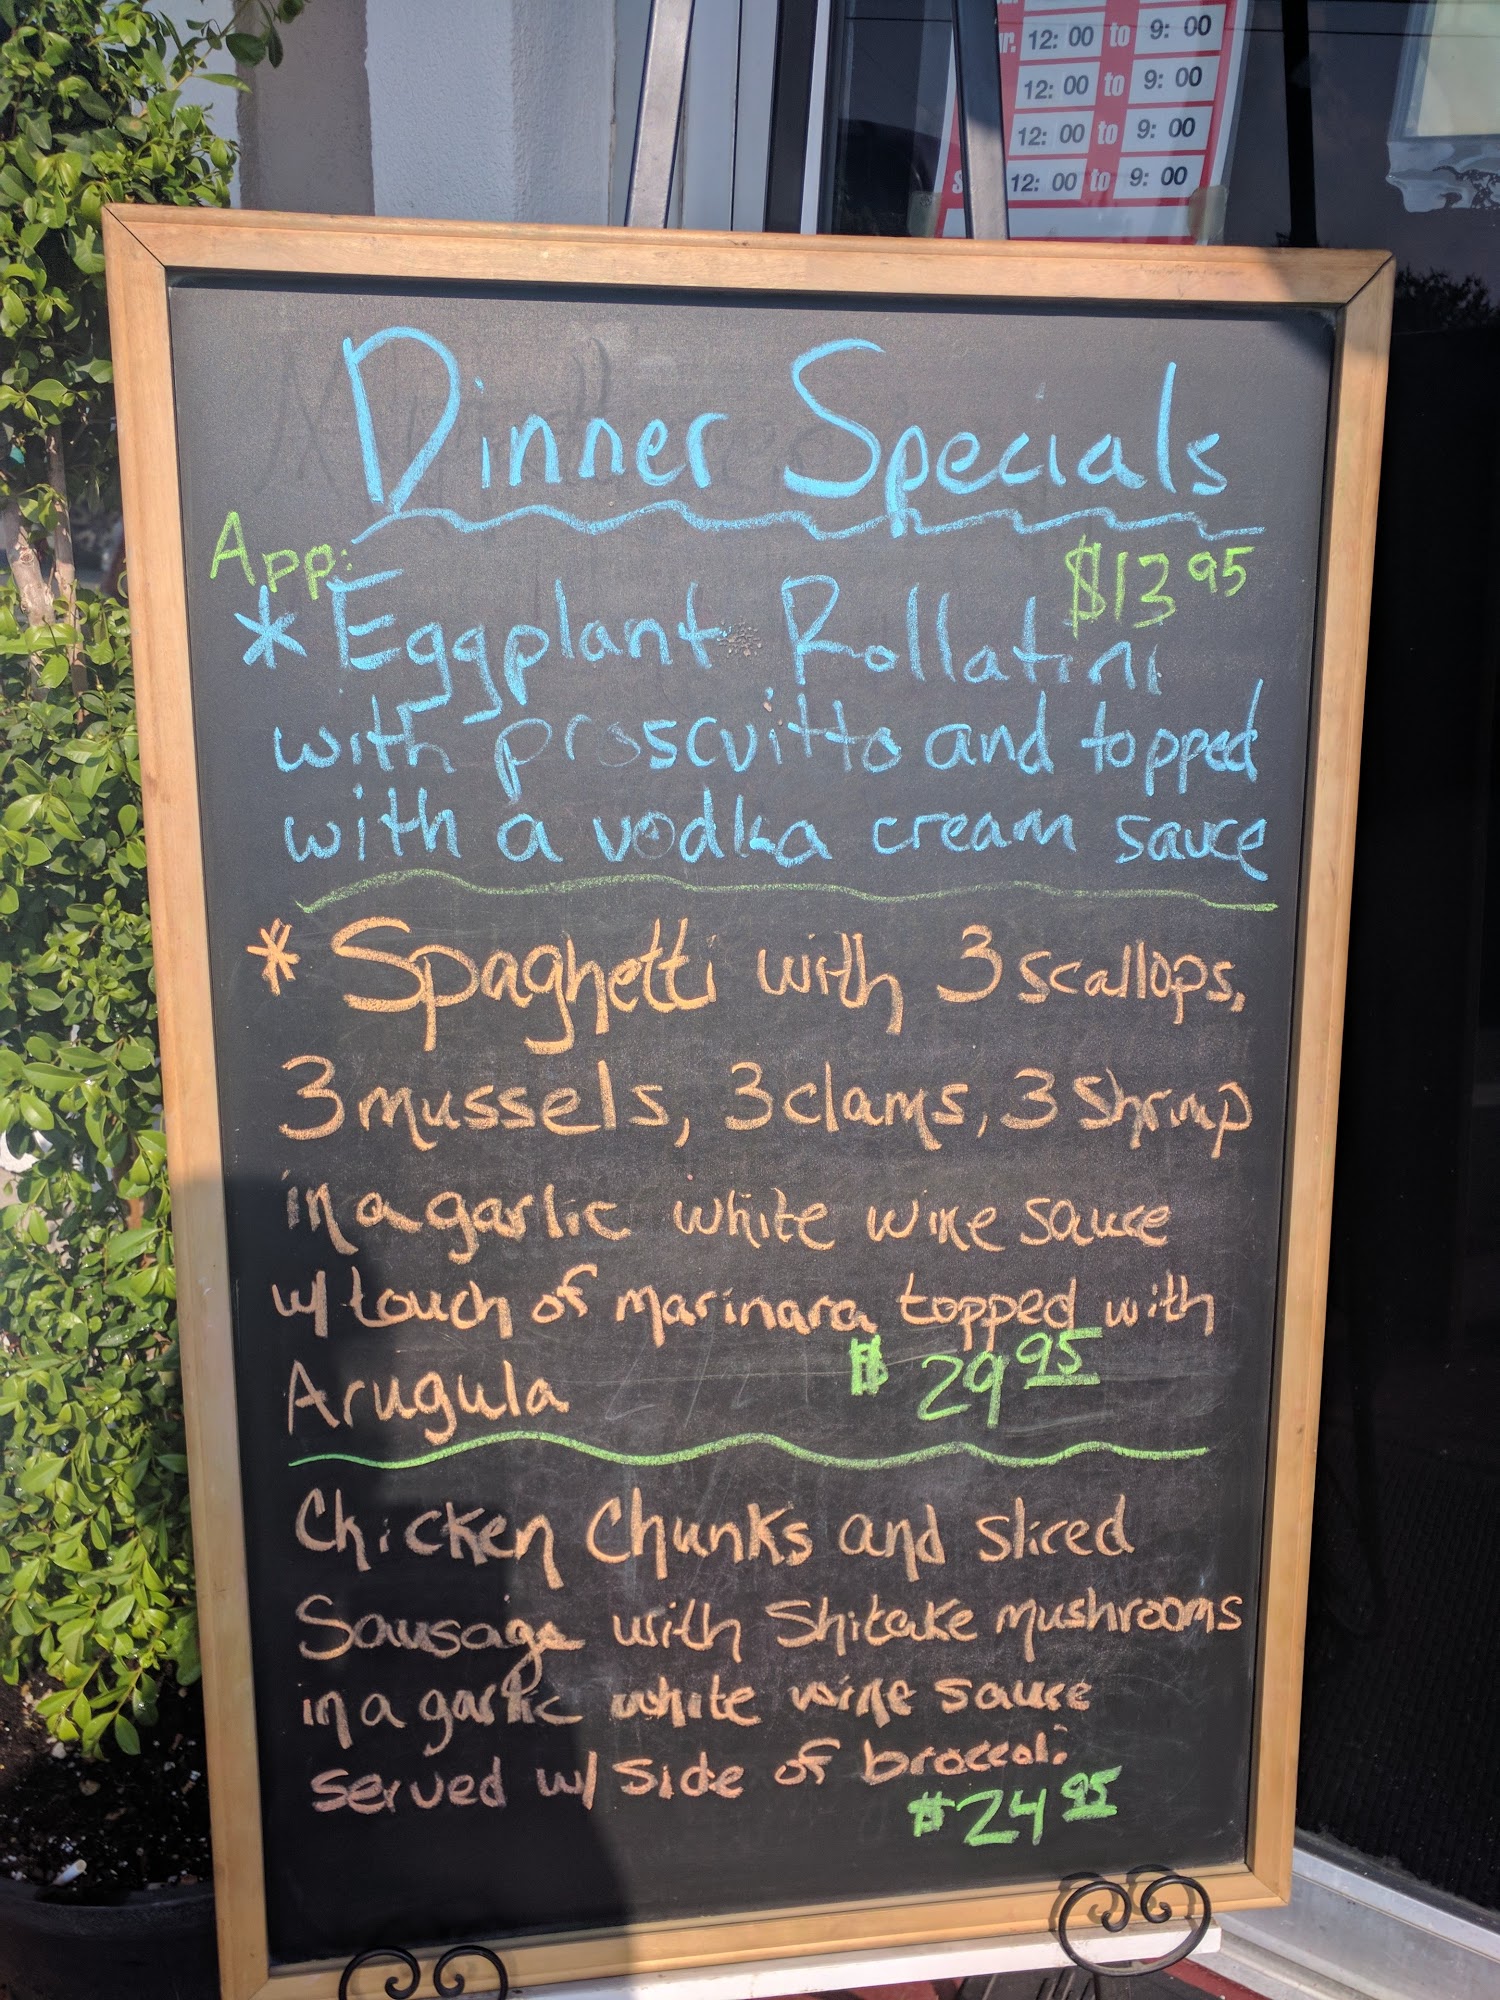 12: 00 to 9: 00
12: 00 to 9: 00
12: 00 to 9: 00
12: 00 to 9: 00
Dinner Specials
App: $13 95
* Eggplant Rollatini
with proscuitto and topped
with a vodka cream sauce
* Spaghetti with 3 scallops,
3 mussels, 3 clams, 3 Shrimp
in a garlic white wine sauce
w/ touch of marinara topped with
Arugula $ 29 95
Chicken Chunks and sliced
Sausage with Shitake mushrooms
in a garlic white wine sauce
served w/ side of broccoli
$24 95